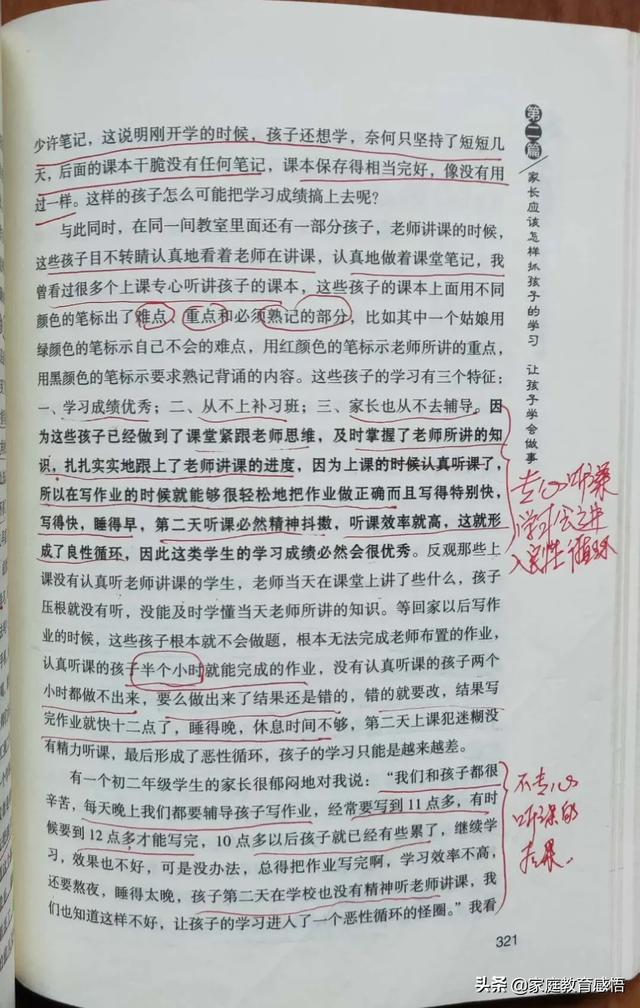 少许笔记，这说明刚开学的时候，孩子还想学，奈何只坚持了短短几
天，后面的课本干脆没有任何笔记，课本保存得相当完好，像没有用
过一样。这样的孩子怎么可能把学习成绩搞上去呢？
与此同时，在同一间教室里面还有一部分孩子，老师讲课的时候，
这些孩子目不转睛认真地看着老师在讲课，认真地做着课堂笔记，我
曾看过很多个上课专心听讲孩子的课本，这些孩子的课本上面用不同
颜色的笔标出了难点、重点和必须熟记的部分，比如其中一个姑娘用
绿颜色的笔标示自己不会的难点，用红颜色的笔标示老师所讲的重点，
用黑颜色的笔标示要求熟记背诵的内容。这些孩子的学习有三个特征：
一、学习成绩优秀；二、从不上补习班；三、家长也从不去辅导。因
为这些孩子已经做到了课堂紧跟老师思维，及时掌握了老师所讲的知
识，扎扎实实地跟上了老师讲课的进度，因为上课的时候认真听课了，
所以在写作业的时候就能够很轻松地把作业做正确而且写得特别快，
写得快，睡得早，第二天听课必然精神抖擞，听课效率就高，这就形
成了良性循环，因此这类学生的学习成绩必然会很优秀。反观那些上
课没有认真听老师讲课的学生，老师当天在课堂上讲了些什么，孩子
压根就没有听，没能及时学懂当天老师所讲的知识。等回家以后写作
业的时候，这些孩子根本就不会做题，根本无法完成老师布置的作业，
认真听课的孩子半个小时就能完成的作业，没有认真听课的孩子两个
小时都做不出来，要么做出来了结果还是错的，错的就要改，结果写
完作业就快十二点了，睡得晚，休息时间不够，第二天上课犯迷糊没
有精力听课，最后形成了恶性循环，孩子的学习只能是越来越差。
有一个初二年级学生的家长很郁闷地对我说：“我们和孩子都很
辛苦，每天晚上我们都要辅导孩子写作业，经常要写到11点多，有时
候要到12点多才能写完，10点多以后孩子就已经有些累了，继续学
习，效果也不好，可是没办法，总得把作业写完啊，学习效率不高，
还要熬夜，睡得太晚，孩子第二天在学校也没有精神听老师讲课，我
们也知道这样不好，让孩子的学习进入了一个恶性循环的怪圈。”我看
第二篇
家长应该怎样抓孩子的学习
让孩子学会做事
专心听课
学习会进
入良性循环
不专心
听课的
后果.
321
头条 @家庭教育感悟